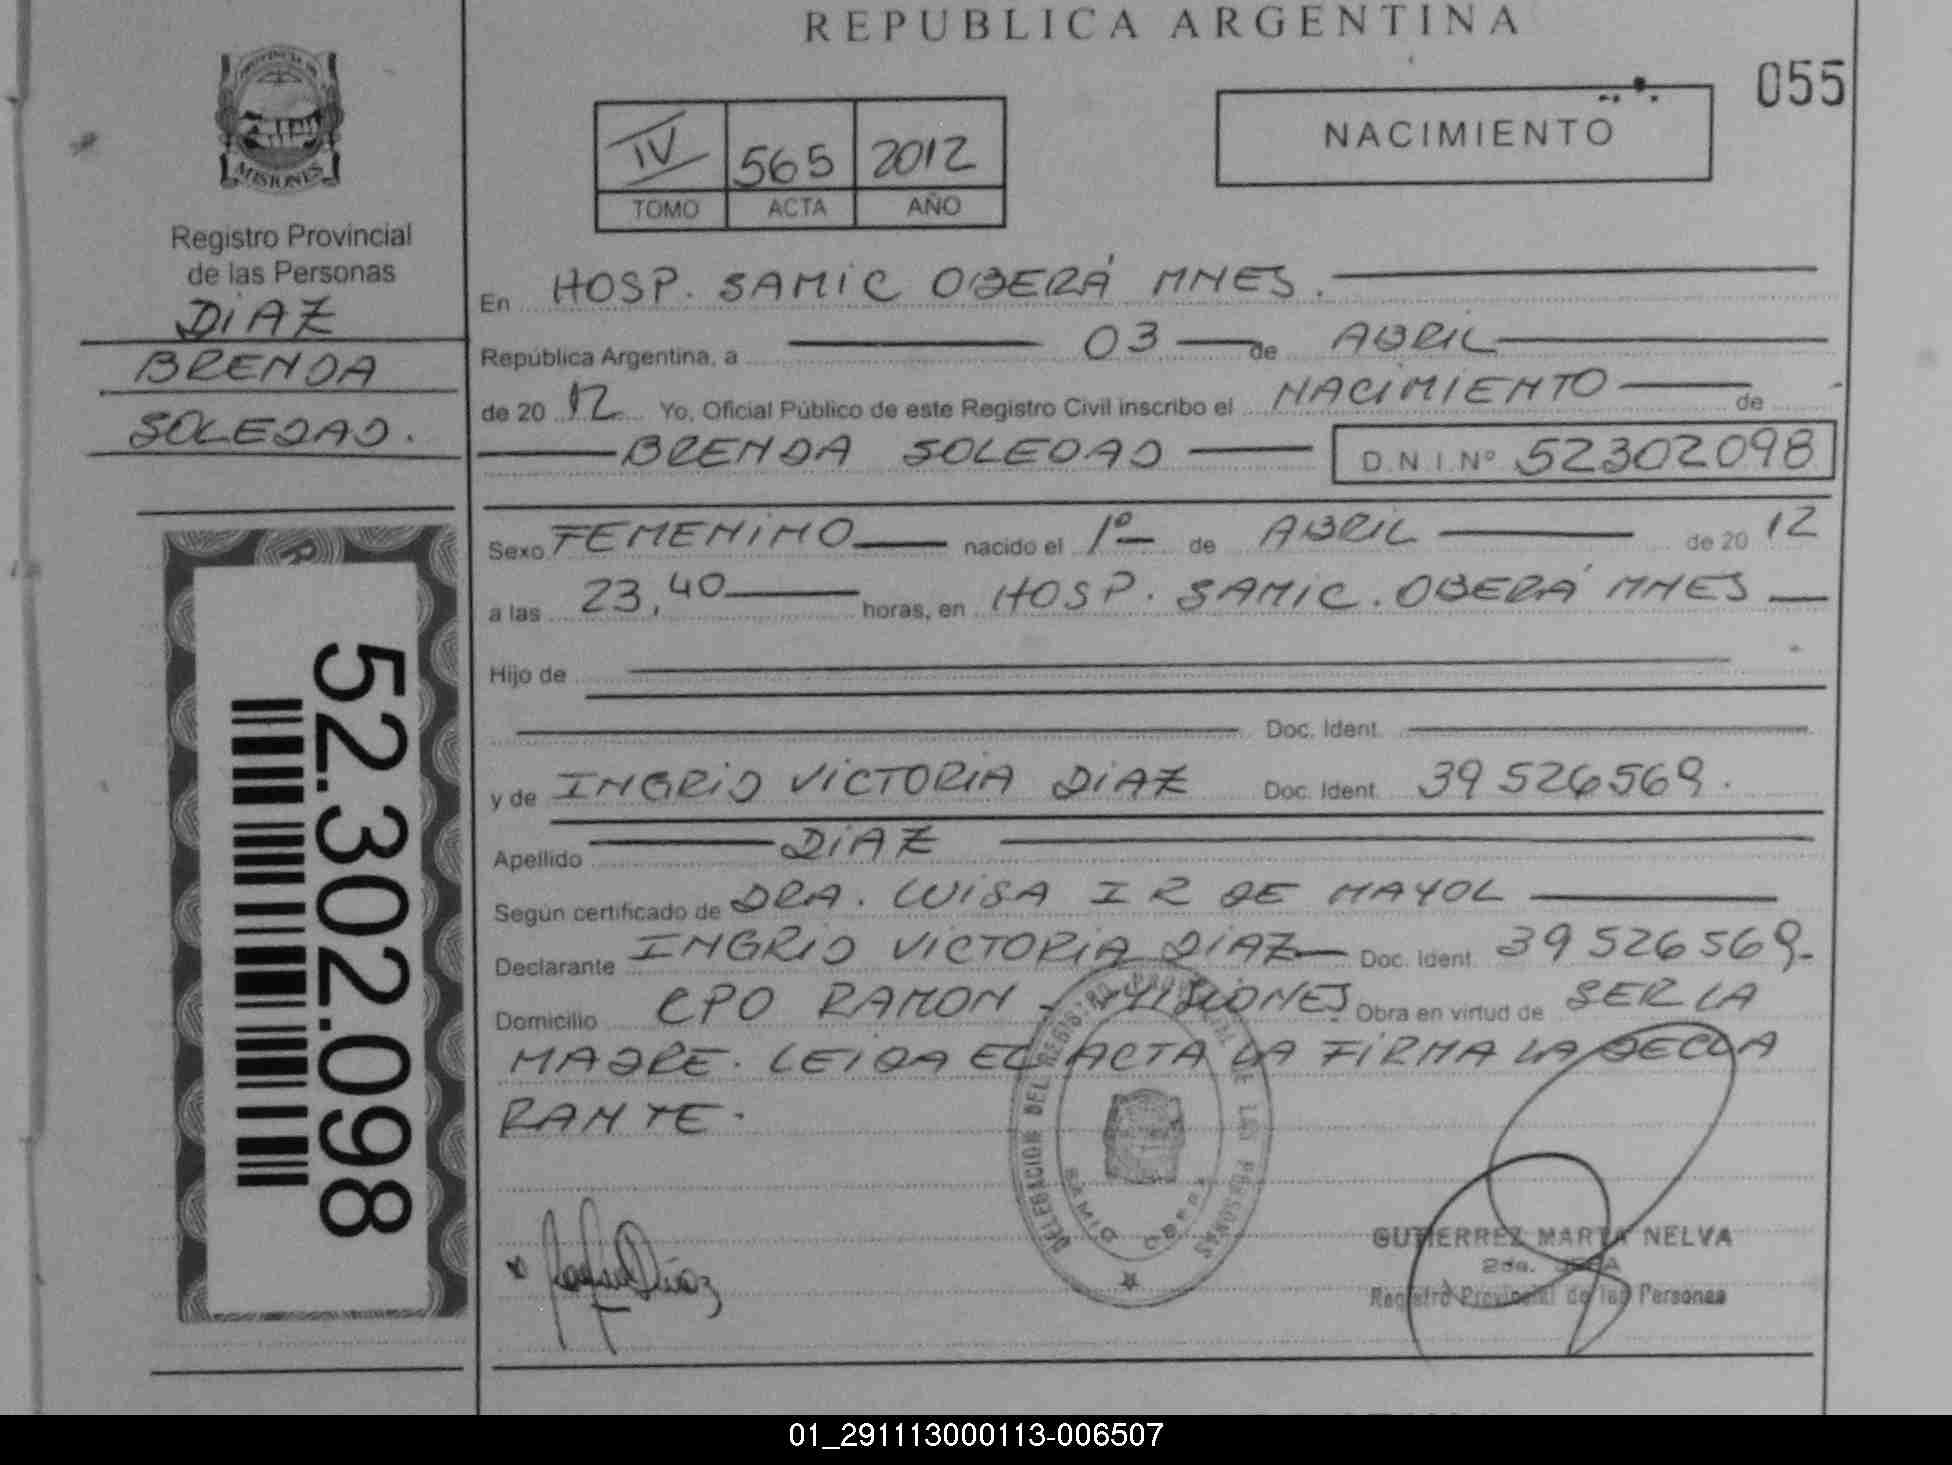 REPUBLICA ARGENTINA
055
PROVINCIA DE
MISIONES
Registro Provincial
de las Personas
DIAZ
BRENDA
SOLEDAD.
52.302.098
IV 565 2012
TOMO ACTA AÑO
NACIMIENTO
En HOSP. SAMIC OBERÁ MNES.
República Argentina, a 03 de ABRIL
de 20 12 Yo, Oficial Público de este Registro Civil inscribo el NACIMIENTO de
BRENDA SOLEDAD D.N.I.Nº 52302098
Sexo FEMENINO nacido el 1º de ABRIL de 20 12
a las 23,40 horas, en HOSP. SAMIC. OBERÁ MNES
Hijo de
Doc. Ident.
y de INGRID VICTORIA DIAZ Doc. Ident. 39 526569.
Apellido DIAZ
Según certificado de DRA. LUISA I R DE MAYOL
Declarante INGRID VICTORIA DIAZ Doc. Ident. 39 526 569.
Domicilio CPO RAMON - MISIONES Obra en virtud de SER LA
MADRE. LEIDA EL ACTA LA FIRMA LA DECLA
RANTE.
DELEGACION DEL REGISTRO PROVINCIAL DE LAS PERSONAS
SAMIC OBERA
Díaz
GUTIERREZ MARTA NELVA
2da. JEFA
Registro Provincial de las Personas
01_291113000113-006507